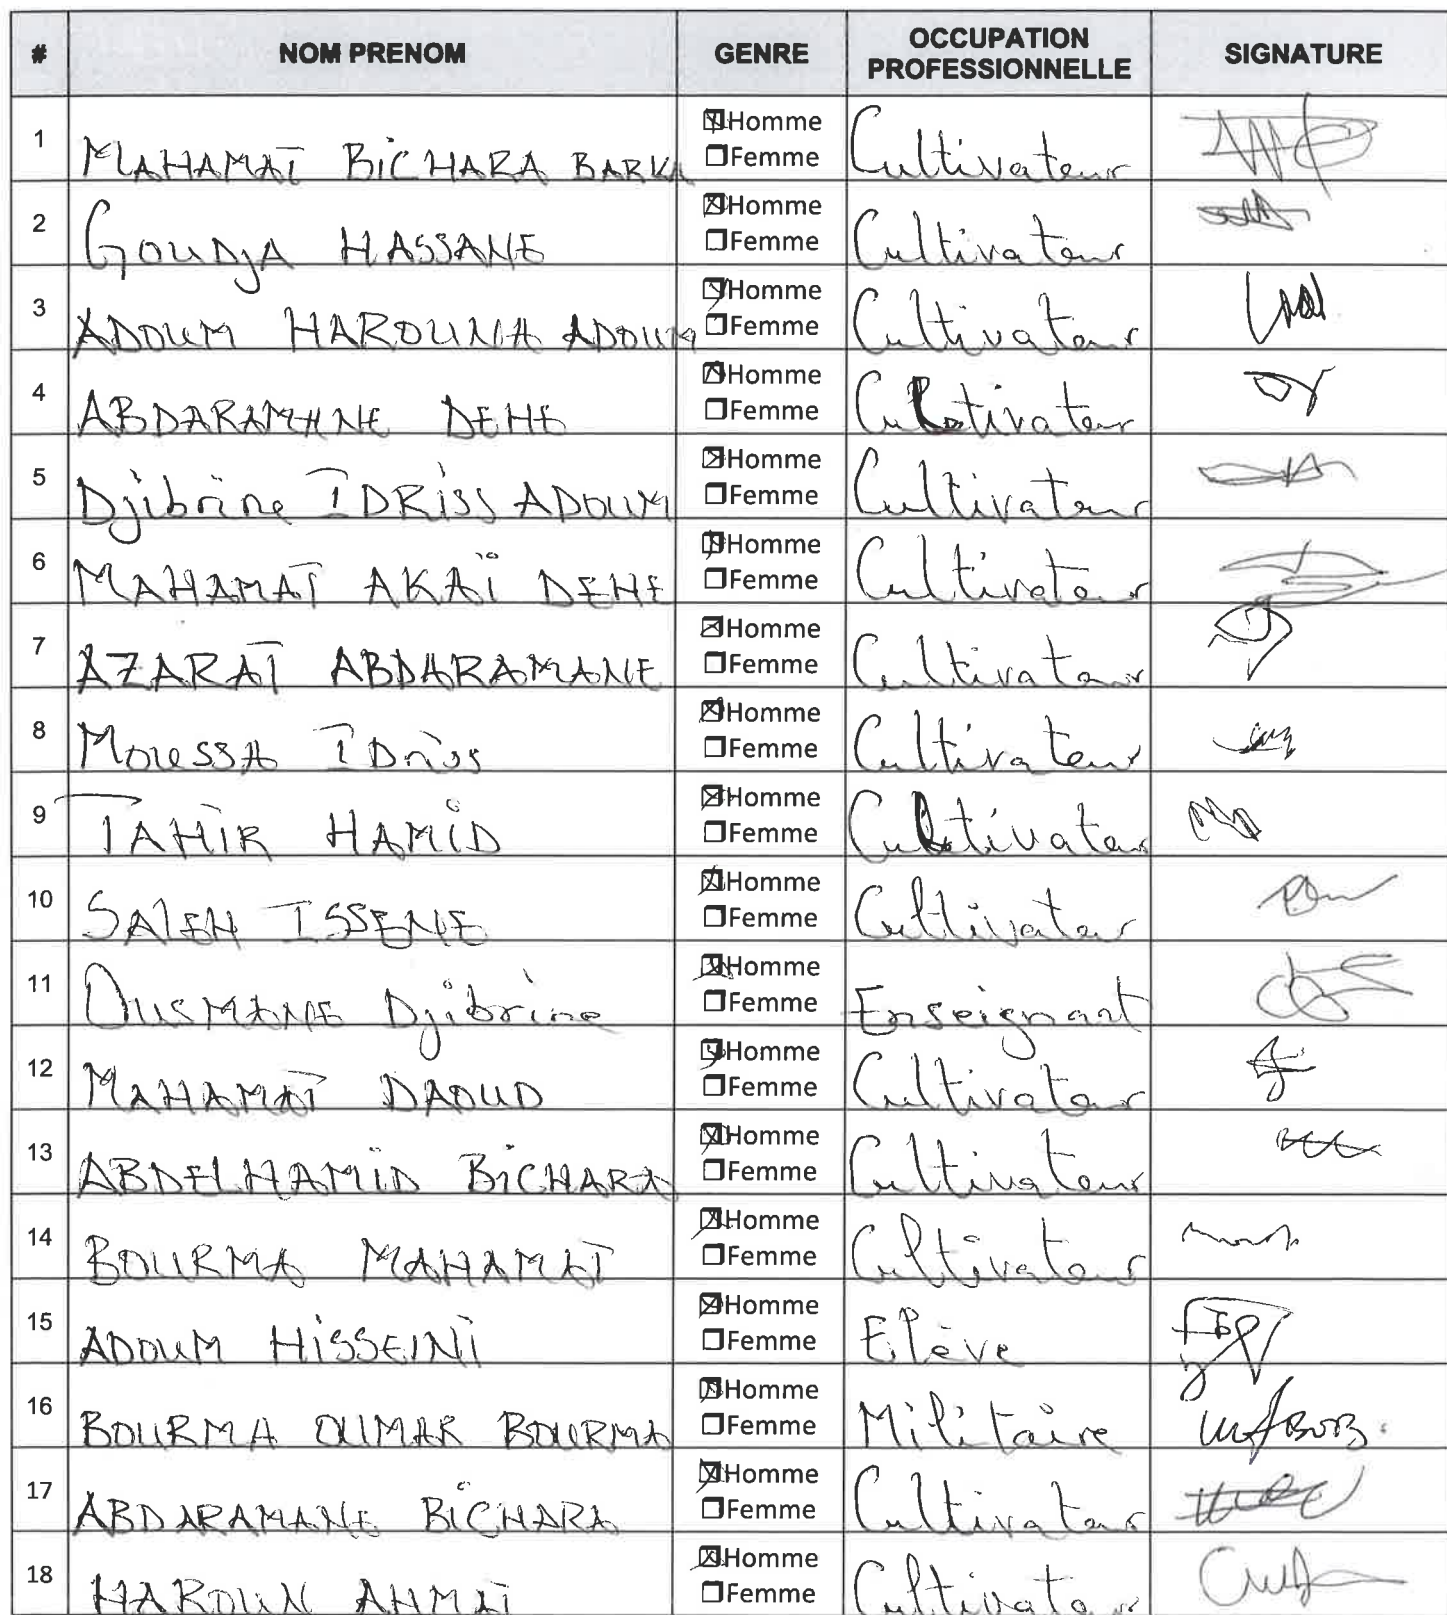 # NOM PRENOM GENRE OCCUPATION PROFESSIONNELLE SIGNATURE
1 MAHAMAT BICHARA BARKA ☒Homme ☐Femme Cultivateur
2 GOUDJA HASSANE ☒Homme ☐Femme Cultivateur
3 ADOUM HAROUNA ADOUM ☒Homme ☐Femme Cultivateur
4 ABDARAMANE DEHE ☒Homme ☐Femme Cultivateur
5 Djibrine IDRISS ADOUM ☒Homme ☐Femme Cultivateur
6 MAHAMAT AKAÏ DEHE ☒Homme ☐Femme Cultivateur
7 AZARAT ABDARAMANE ☒Homme ☐Femme Cultivateur
8 MOUSSA IDriss ☒Homme ☐Femme Cultivateur
9 TAHIR HAMID ☒Homme ☐Femme Cultivateur
10 SALEH ISSENE ☒Homme ☐Femme Cultivateur
11 OUSMANE Djibrine ☒Homme ☐Femme Enseignant
12 MAHAMAT DAOUD ☒Homme ☐Femme Cultivateur
13 ABDELHAMID BICHARA ☒Homme ☐Femme Cultivateur
14 BOURMA MAHAMAT ☒Homme ☐Femme Cultivateur
15 ADOUM HISSEINI ☒Homme ☐Femme Elève
16 BOURMA OUMAR BOURMA ☒Homme ☐Femme Militaire
17 ABDARAMANE BICHARA ☒Homme ☐Femme Cultivateur
18 HAROUN AHMAT ☒Homme ☐Femme Cultivateur